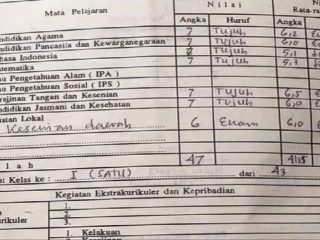 Mata Pelajaran Nilai Nil
Angka Huruf Rata-ra
Angka
ndidikan Agama 7 Tujuh 6,2 E
ndidikan Pancasila dan Kewarganegaraan 7 Tujuh 6,0 E
ahasa Indonesia 7 Tujuh 5,1
atematika 7 Tujuh 5,3
u Pengetahuan Alam ( IPA )
u Pengetahuan Sosial ( IPS )
rajinan Tangan dan Kesenian 7 Tujuh 6,5
ndidikan Jasmani dan Kesehatan 7 Tujuh 6,0
atan Lokal
Kesenian daerah 6 Enam 6,0
l a h 47
at Kelas ke : I (SATU) dari 43
Kegiatan Ekstrakurikuler dan Kepribadian
1.
urikuler 2.
3.
1. Kelakuan